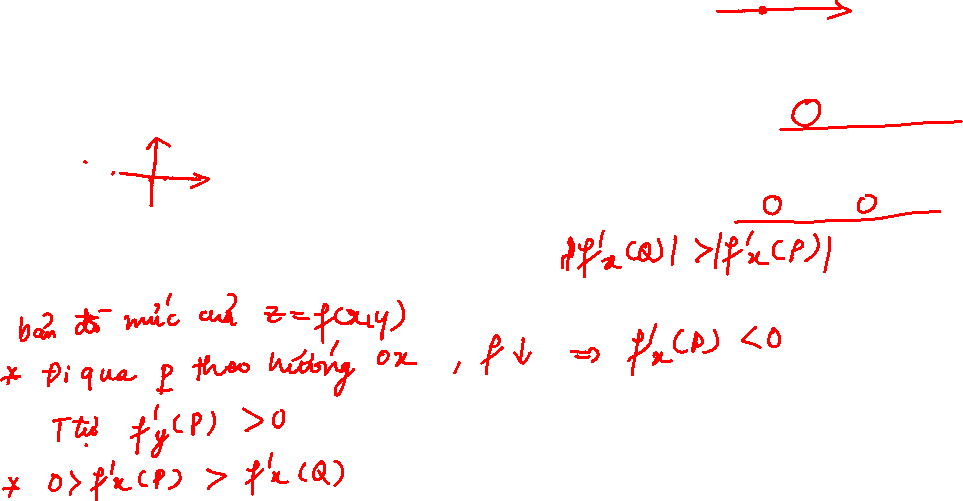 |f'x(Q)| > |f'x(P)|
bản đồ mức của z = f(x,y)
* Đi qua P theo hướng Ox, f ↓ ⇒ f'x(P) < 0
Ttự f'y(P) > 0
* 0 > f'x(P) > f'x(Q)